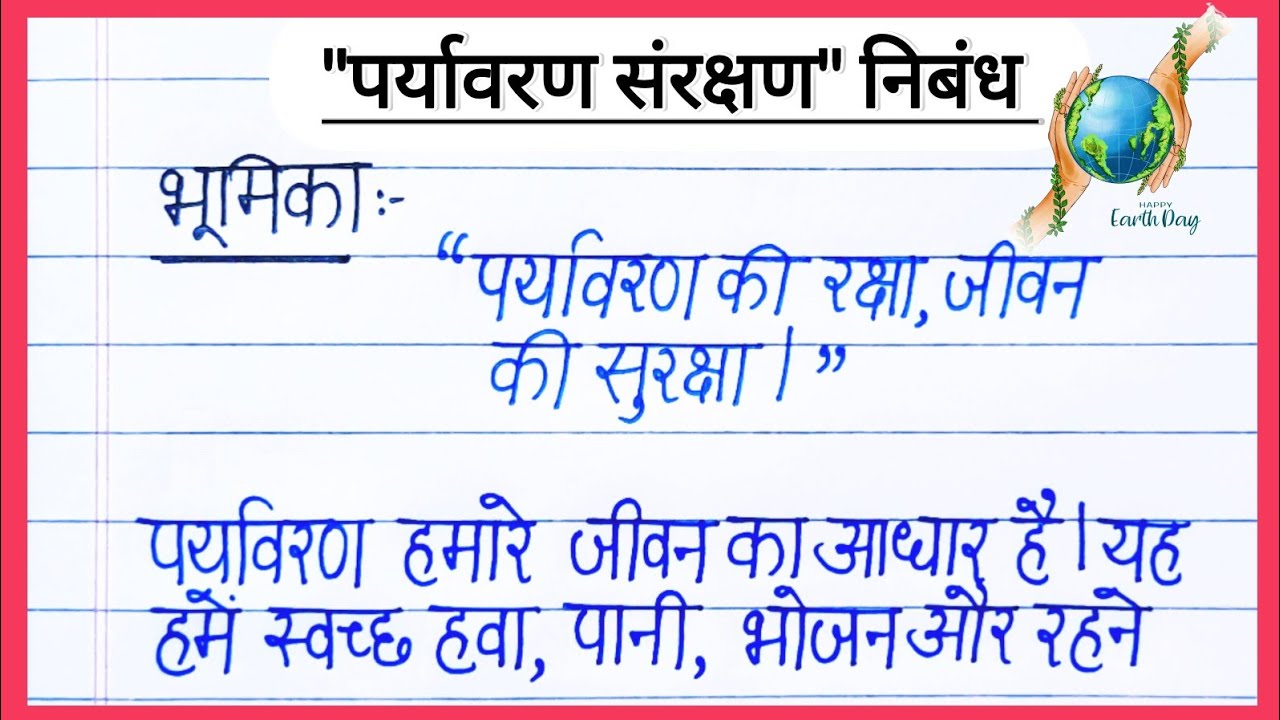 "पर्यावरण संरक्षण" निबंध
HAPPY
Earth Day
भूमिका :-
“पर्यावरण की रक्षा, जीवन
की सुरक्षा।”
पर्यावरण हमारे जीवन का आधार है। यह
हमें स्वच्छ हवा, पानी, भोजन और रहने